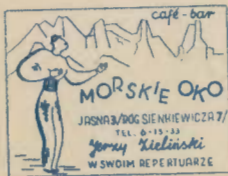 café-bar
MORSKIE OKO
JASNA 3/RÓG SIENKIEWICZA 7/
TEL. 6-15-33
Jerzy Zieliński
W SWOIM REPERTUARZE